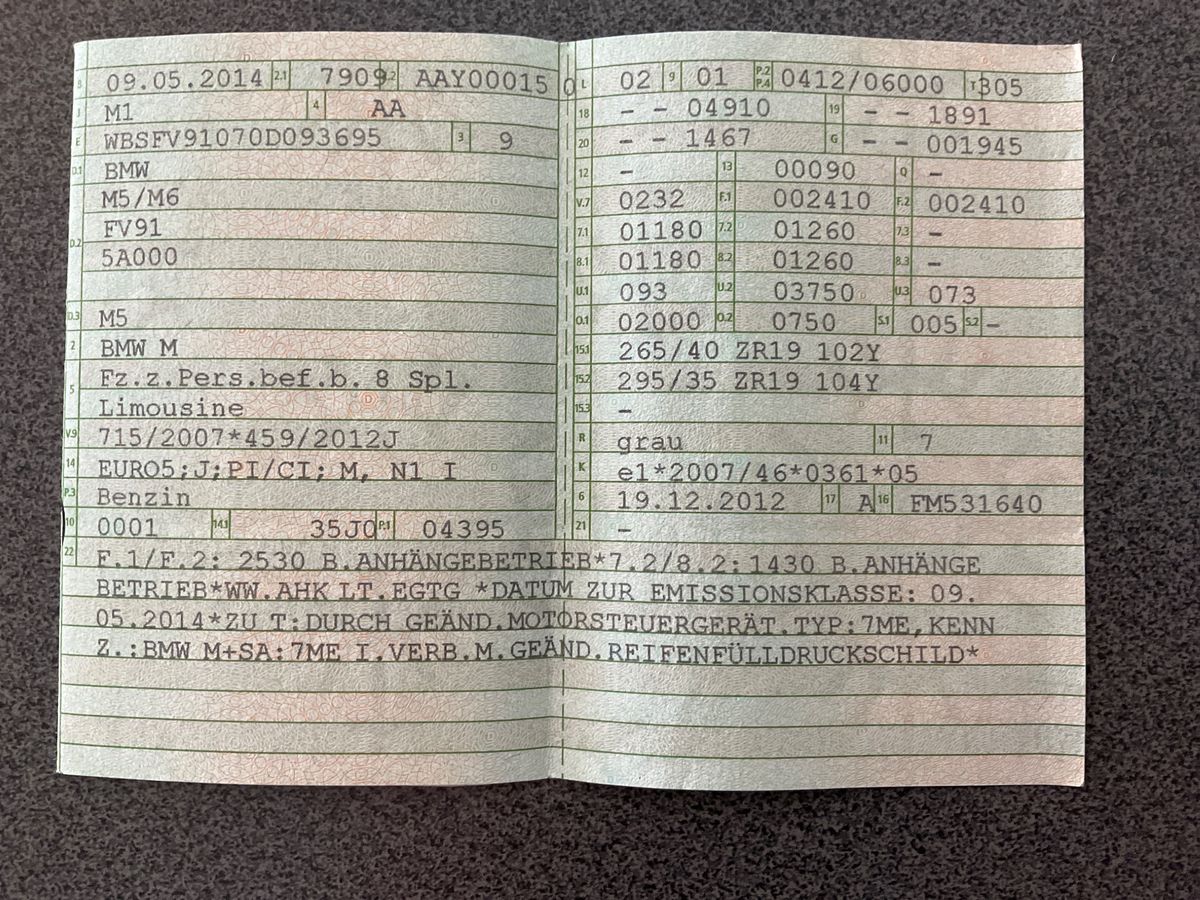 B 09.05.2014 2.1 7909 2.2 AAY00015 0 L 02 9 01 P.2 P.4 0412/06000 T 305
J M1 4 AA 18 - - 04910 19 - - 1891
E WBSFV91070D093695 3 9 20 - - 1467 G - - 001945
D.1 BMW 12 - 13 00090 Q -
M5/M6 V.7 0232 F.1 002410 F.2 002410
D.2 FV91 7.1 01180 7.2 01260 7.3 -
5A000 8.1 01180 8.2 01260 8.3 -
U.1 093 U.2 03750 U.3 073
D.3 M5 O.1 02000 O.2 0750 S.1 005 S.2 -
2 BMW M 15.1 265/40 ZR19 102Y
5 Fz.z.Pers.bef.b. 8 Spl. 15.2 295/35 ZR19 104Y
Limousine 15.3 -
V.9 715/2007*459/2012J R grau 11 7
14 EURO5;J;PI/CI; M, N1 I K e1*2007/46*0361*05
P.3 Benzin 6 19.12.2012 17 A 16 FM531640
10 0001 14.1 35J0 P.1 04395 21 -
22 F.1/F.2: 2530 B.ANHÄNGEBETRIEB*7.2/8.2:1430 B.ANHÄNGE
BETRIEB*WW.AHK LT.EGTG *DATUM ZUR EMISSIONSKLASSE: 09.
05.2014*ZU T:DURCH GEÄND.MOTORSTEUERGERÄT.TYP:7ME,KENN
Z.:BMW M+SA:7ME I.VERB.M.GEÄND.REIFENFÜLLDRUCKSCHILD*